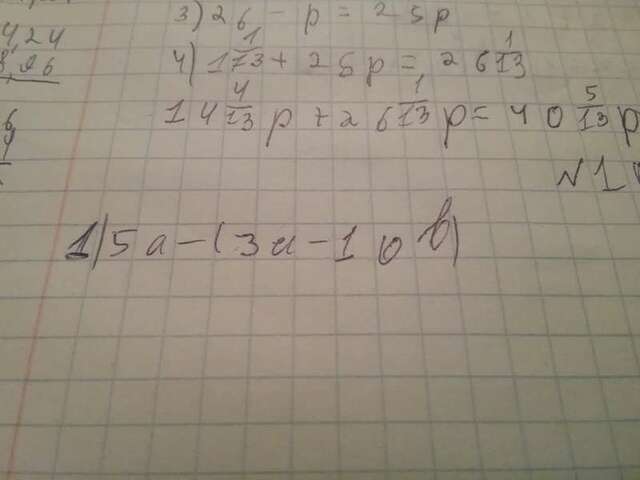 424
26
3) 26 - p = 25p
4) 1 1/13 + 25p = 26 1/13
14 4/13 p + 26 1/13 p = 40 5/13 p
№1
1) 5a - (3a - 10b)